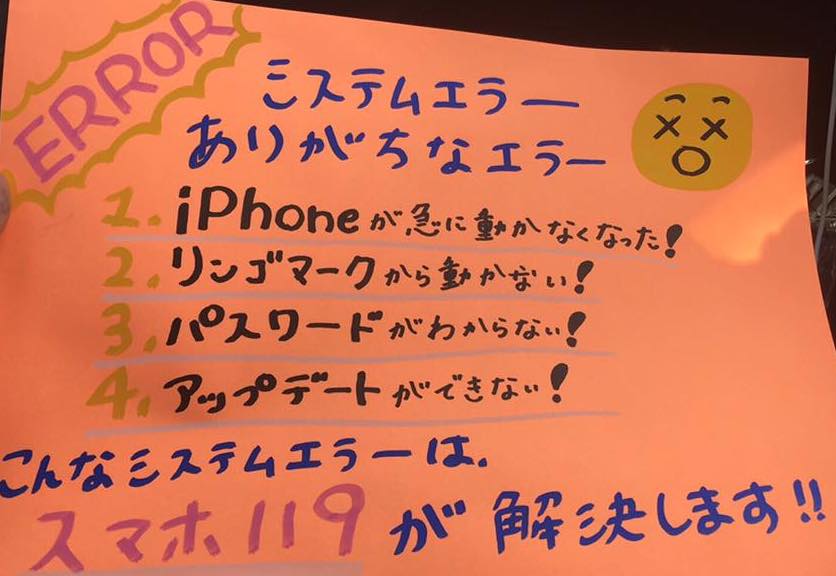 ERROR
ミステムエラー
ありがちなエラー
1. iPhoneが急に動かなくなった!
2. リンゴマークから動かない!
3. パスワードがわからない!
4. アップデートができない!
こんなミステムエラーは、
スマホ119が解決します!!